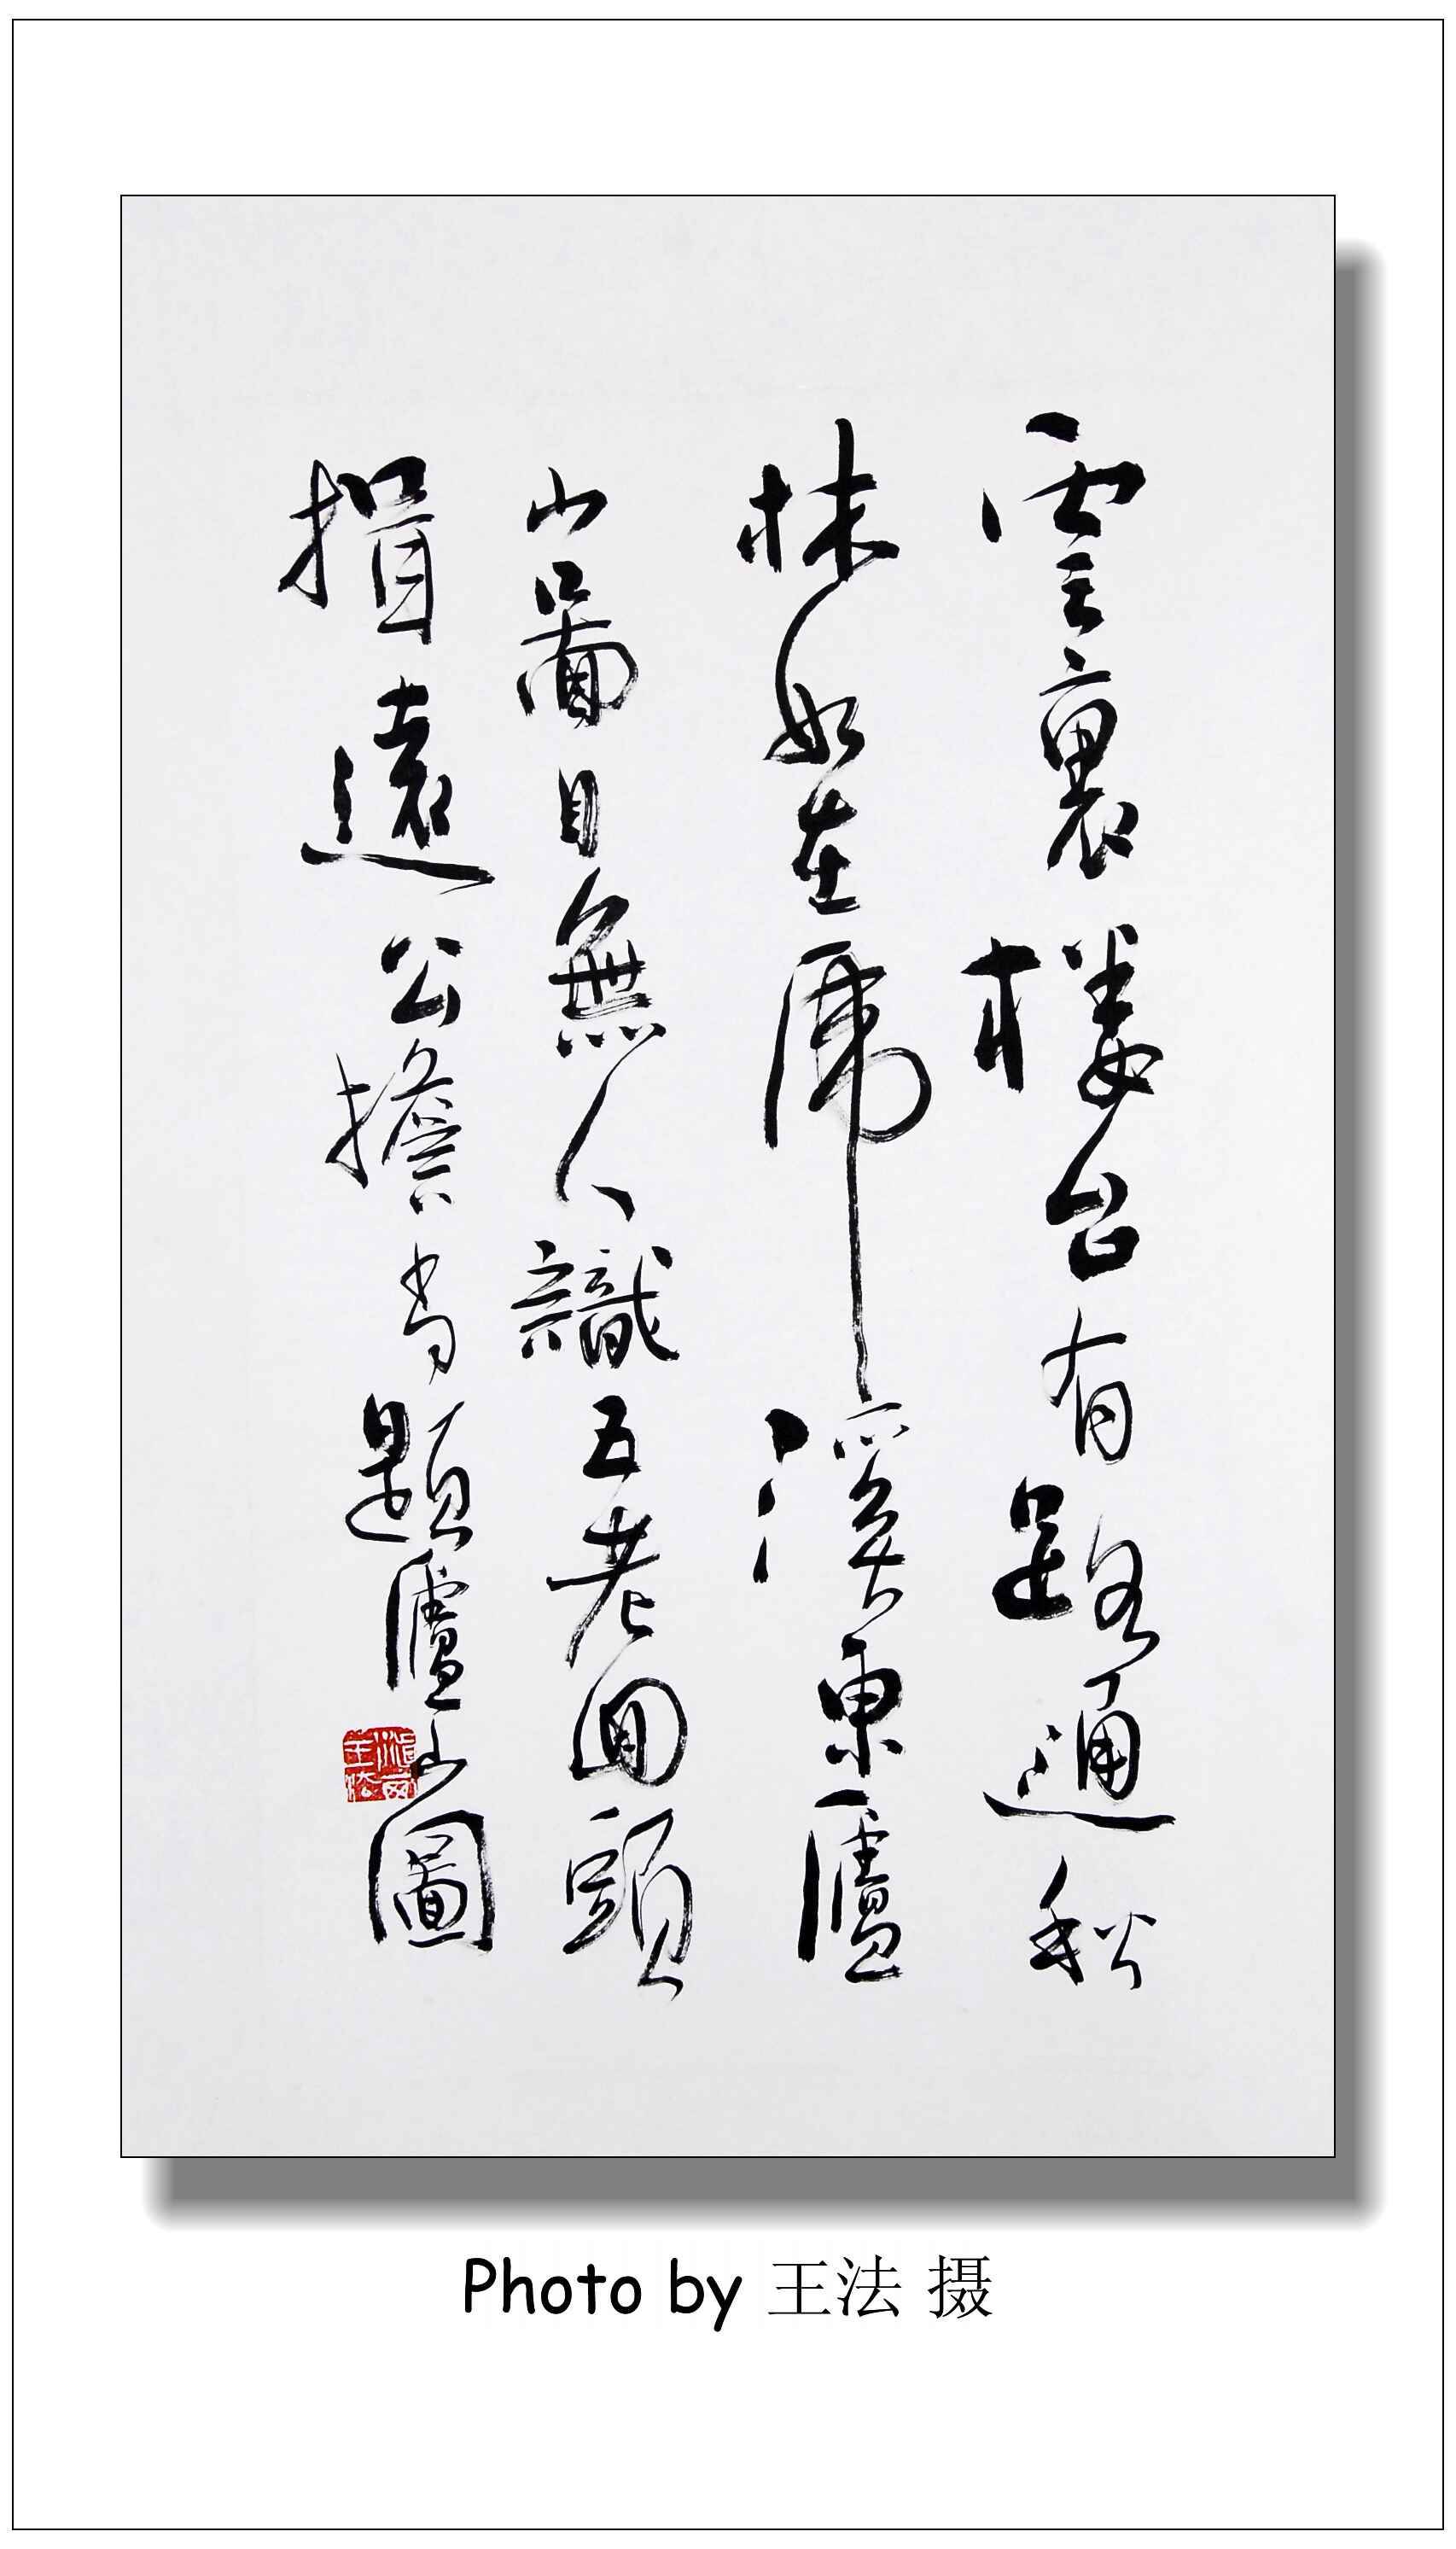 雲裏樓台有路通秋
林如在虎溪東廬
山面目無人識五老回頭
揖遠公擔當題廬山圖
Photo by 王法 摄